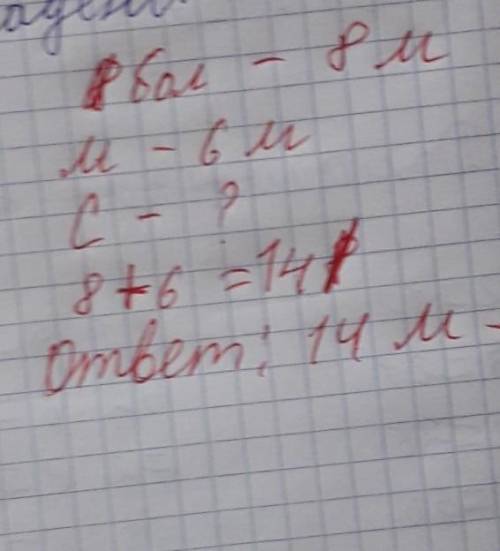 бол - 8 м
м - 6 м
С - ?
8 + 6 = 14
Ответ: 14 м